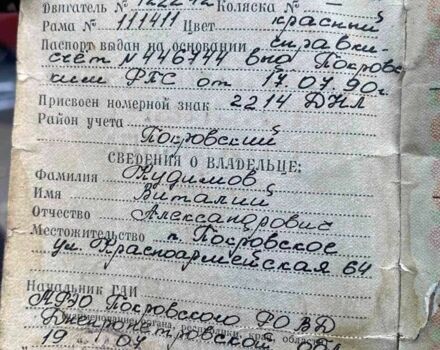 Двигатель № 122242 Коляска № —
Рама № 111411 Цвет красный
Паспорт выдан на основании справки-
счёт № 446744 вто Покровс
ким ФТС от 17.07.90г.
Присвоен номерной знак 2214 ДНЛ
Район учета
Покровский
СВЕДЕНИЯ О ВЛАДЕЛЬЦЕ:
Фамилия Кудимов
Имя Виталий
Отчество Александрович
Местожительство п. Покровское
ул. Красноармейская 64
Начальник ГАИ
МРЭО Покровского РОВД
Днепропетровской обл
19 07